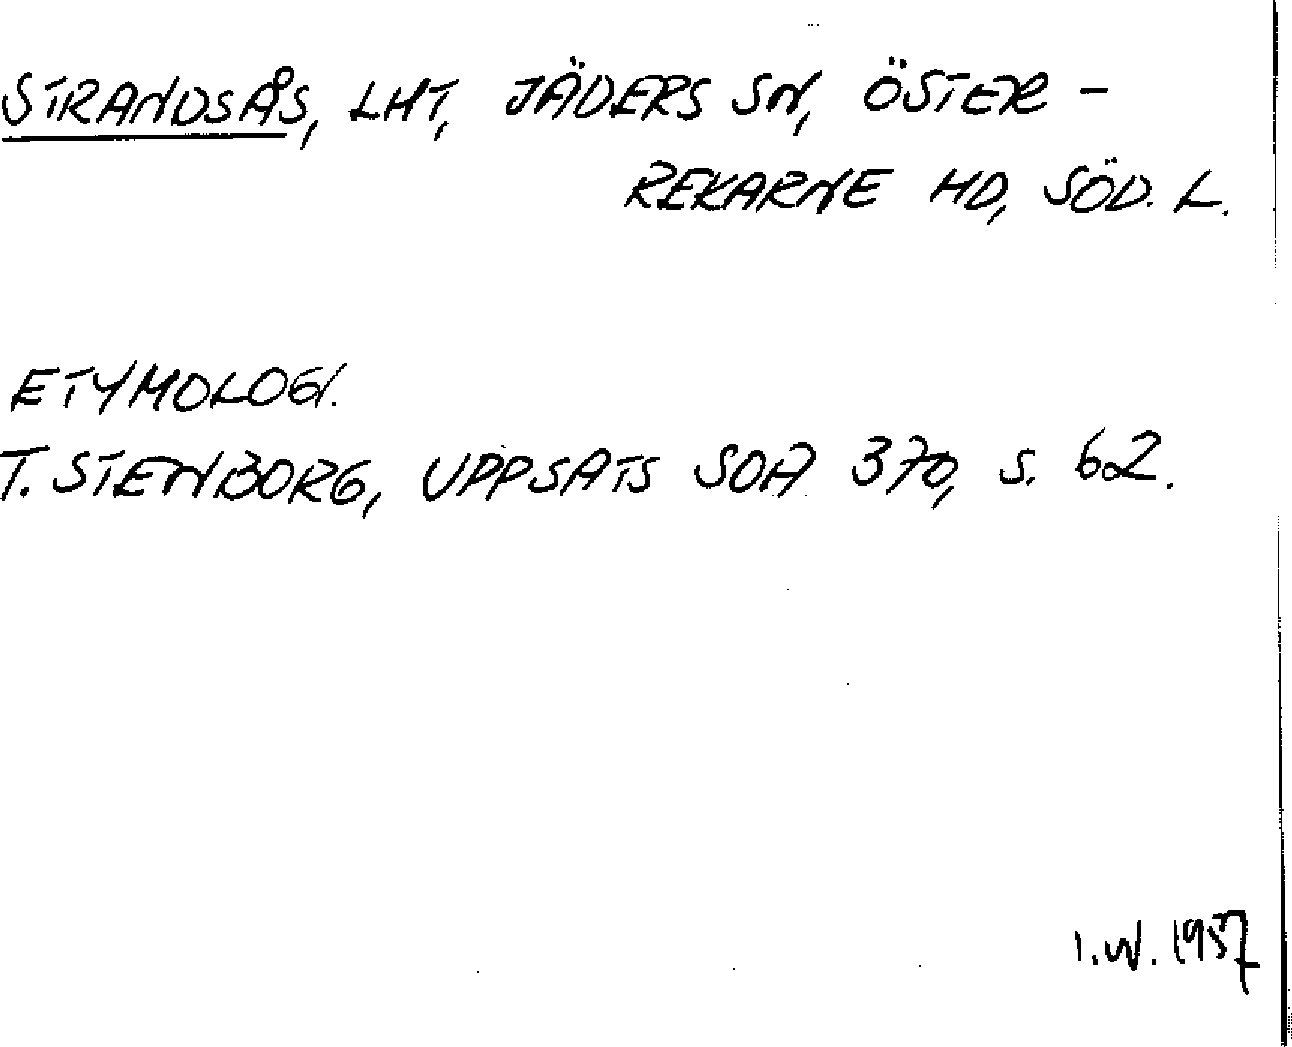 STRANDSÅS, LHT, JÄDERS SN, ÖSTER-
REKARNE HD, SÖD. L.
ETYMOLOGI.
T. STENBORG, UPPSATS SOA 370, S. 62.
I.W. 1957